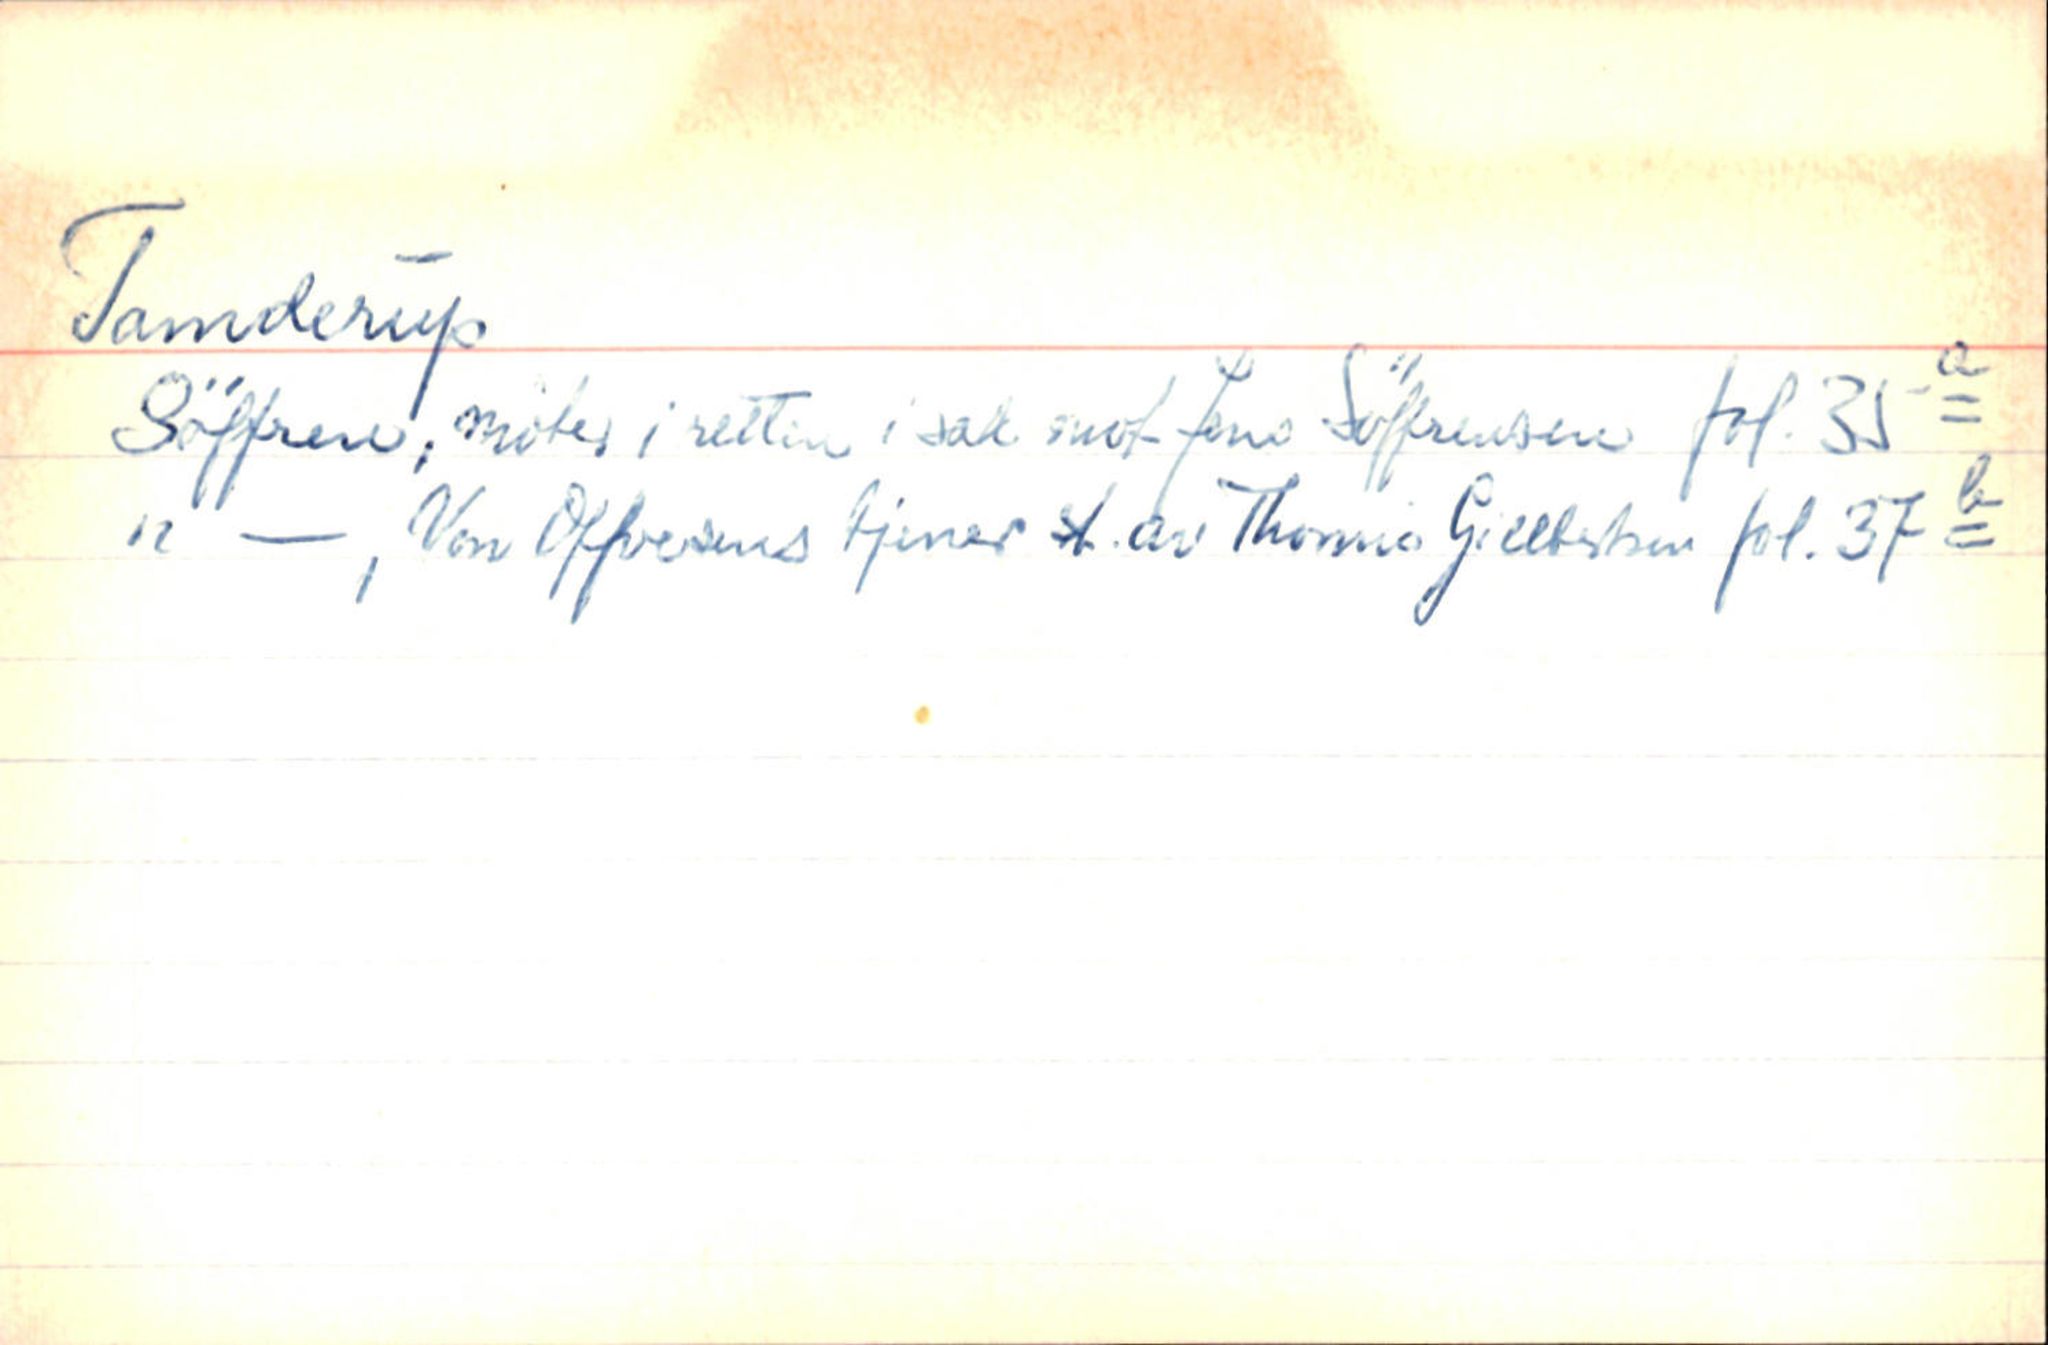 Tamderup
Söffren, möter i retten i sak mot Jens Söffrensen fol. 35 a
" —, Von Offvesens tjener st. av Thomis Gillbertsen fol. 37 b